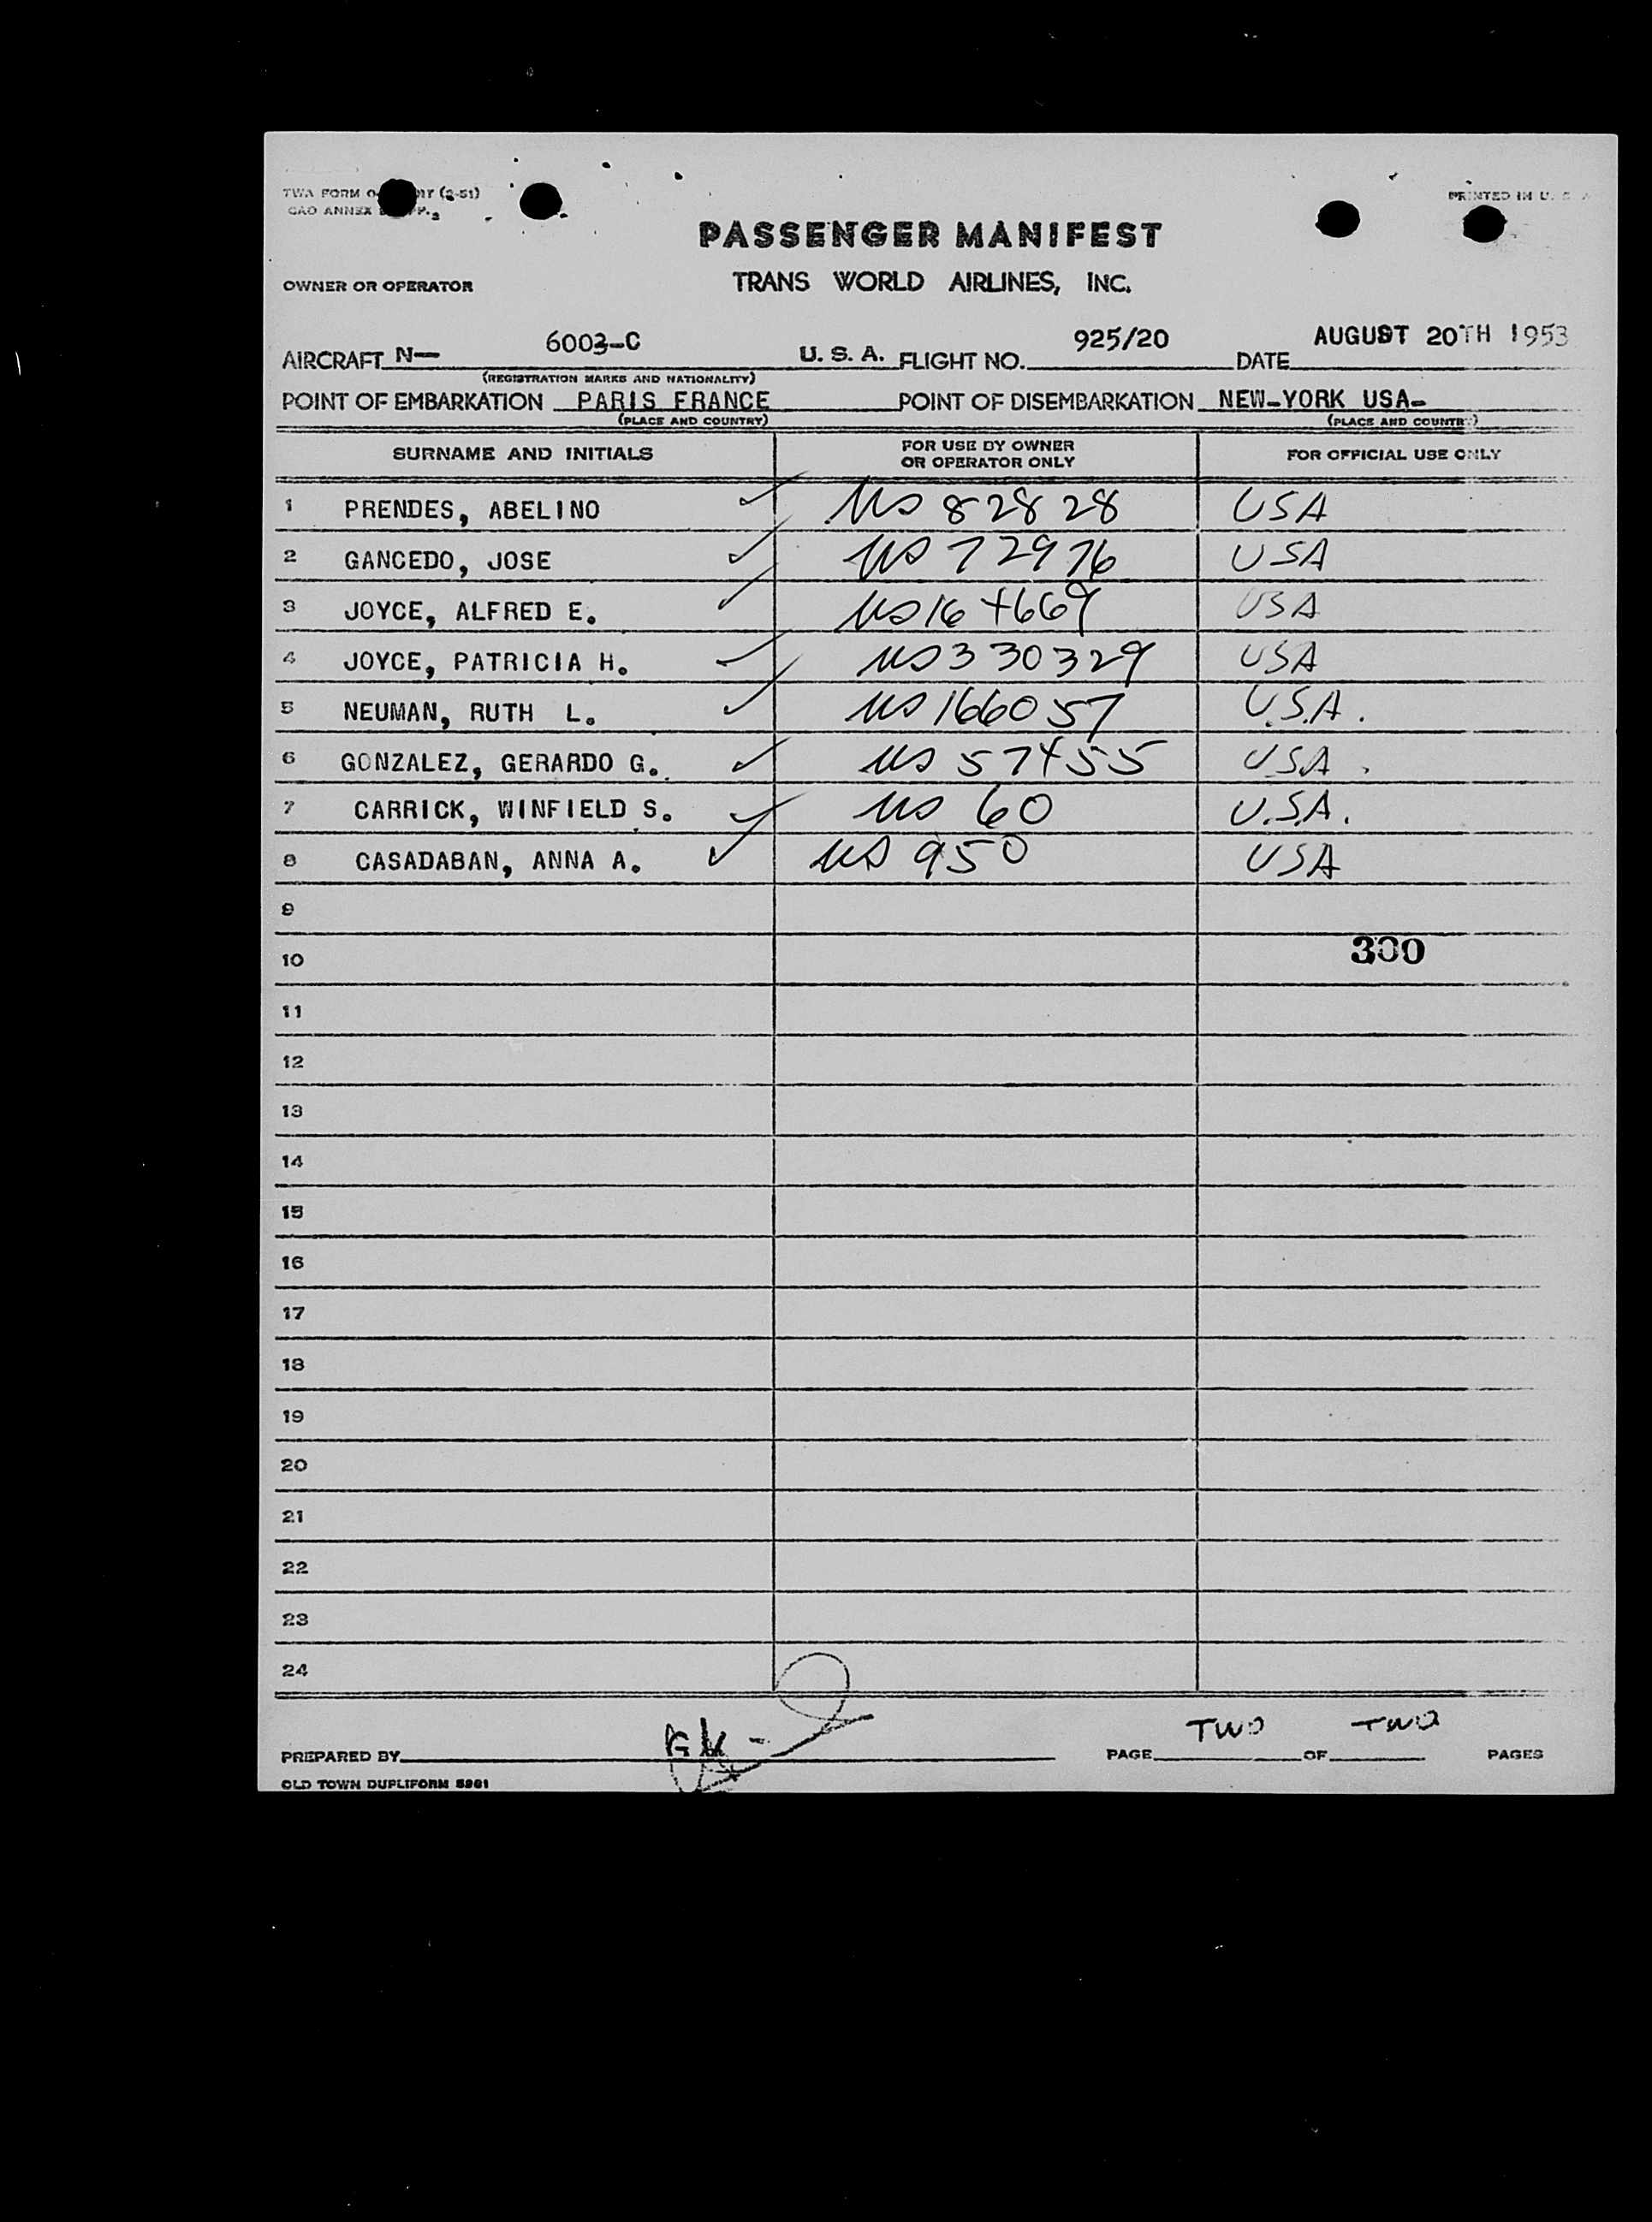 TWA FORM
PRINTED IN U. S. A
CAO ANNEX
PASSENGER MANIFEST
OWNER OR OPERATOR TRANS WORLD AIRLINES, INC.
AIRCRAFT N— 6003-C U. S. A. FLIGHT NO. 925/20 DATE AUGUST 20TH 1953
(REGISTRATION MARKS AND NATIONALITY)
POINT OF EMBARKATION PARIS FRANCE POINT OF DISEMBARKATION NEW-YORK USA-
(PLACE AND COUNTRY) (PLACE AND COUNTRY)
SURNAME AND INITIALS FOR USE BY OWNER OR OPERATOR ONLY FOR OFFICIAL USE ONLY
1 PRENDES, ABELINO US 82828 USA
2 GANCEDO, JOSE US 72976 USA
3 JOYCE, ALFRED E. US 164669 USA
4 JOYCE, PATRICIA H. US 330329 USA
5 NEUMAN, RUTH L. US 166057 U.S.A.
6 GONZALEZ, GERARDO G. US 57455 U.S.A.
7 CARRICK, WINFIELD S. US 60 U.S.A.
8 CASADABAN, ANNA A. US 950 USA
9
10 300
11
12
13
14
15
16
17
18
19
20
21
22
23
24
PREPARED BY PAGE TWO OF TWO PAGES
OLD TOWN DUPLIFORM 5961